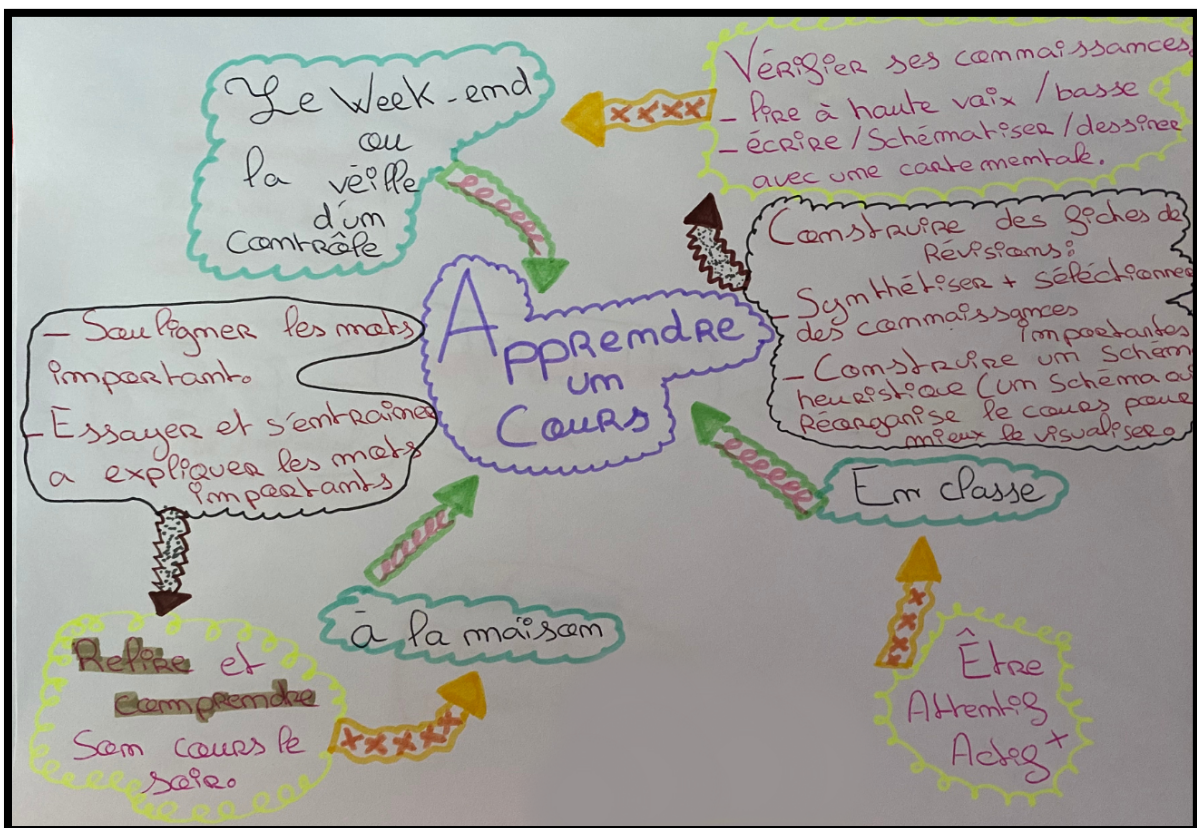 Apprendre
un
Cours
Le Week-end
ou
la véille
d'un
Contrôle
Vérifier ses connaissances
- lire à haute vaix / basse
- écrire / Schématiser / dessiner
avec une carte mentale.
Construire des fiches de
Révisions :
- Synthétiser + séléctionner
des connaissances
importantes
- Construire un Schém
heuristique (un Schéma qui
Réorganise le cours pour
mieux le visualiser.
- Souligner les mots
important.
- Essayer et s'entrainer
a expliquer les mots
importants
Relire et
comprendre
Son cours le
soir.
à la maison
En classe
Être
Attentif
Actif +